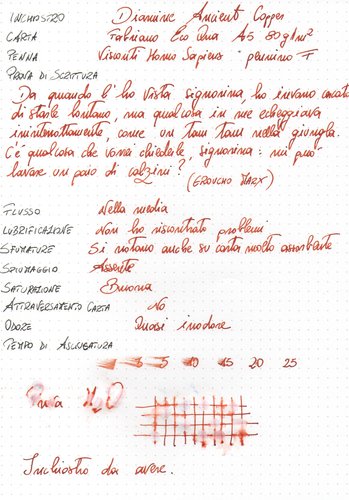 INCHIOSTRO Diamine Ancient Copper
CARTA Fabriano EcoQua A5 80 g/m²
PENNA Visconti Homo Sapiens - pennino F
PROVA DI SCRITTURA
Da quando l'ho vista signorina, ho invano cercato
di starle lontano, ma qualcosa in me echeggiava
ininterrottamente, come un tam tam nella giungla.
C'è qualcosa che vorrei chiederle, signorina: mi può
lavare un paio di calzini?
(GROUCHO MARX)
FLUSSO Nella media
LUBRIFICAZIONE Non ho riscontrato problemi
SFUMATURE Si notano anche su carta molto assorbente
SPIUMAGGIO Assente
SATURAZIONE Buona
ATTRAVERSAMENTO CARTA No
ODORE Quasi inodore
TEMPO DI ASCIUGATURA
5 10 15 20 25
H₂O
Inchiostro da avere.